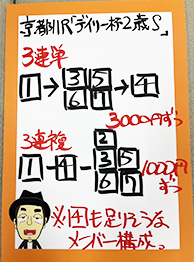 京都11R「デイリー杯2歳S」
3連単
1→3567→4
3000円ずつ
3連複
1-4-23567
1000円ずつ
※4も足りそうな
メンバー構成。